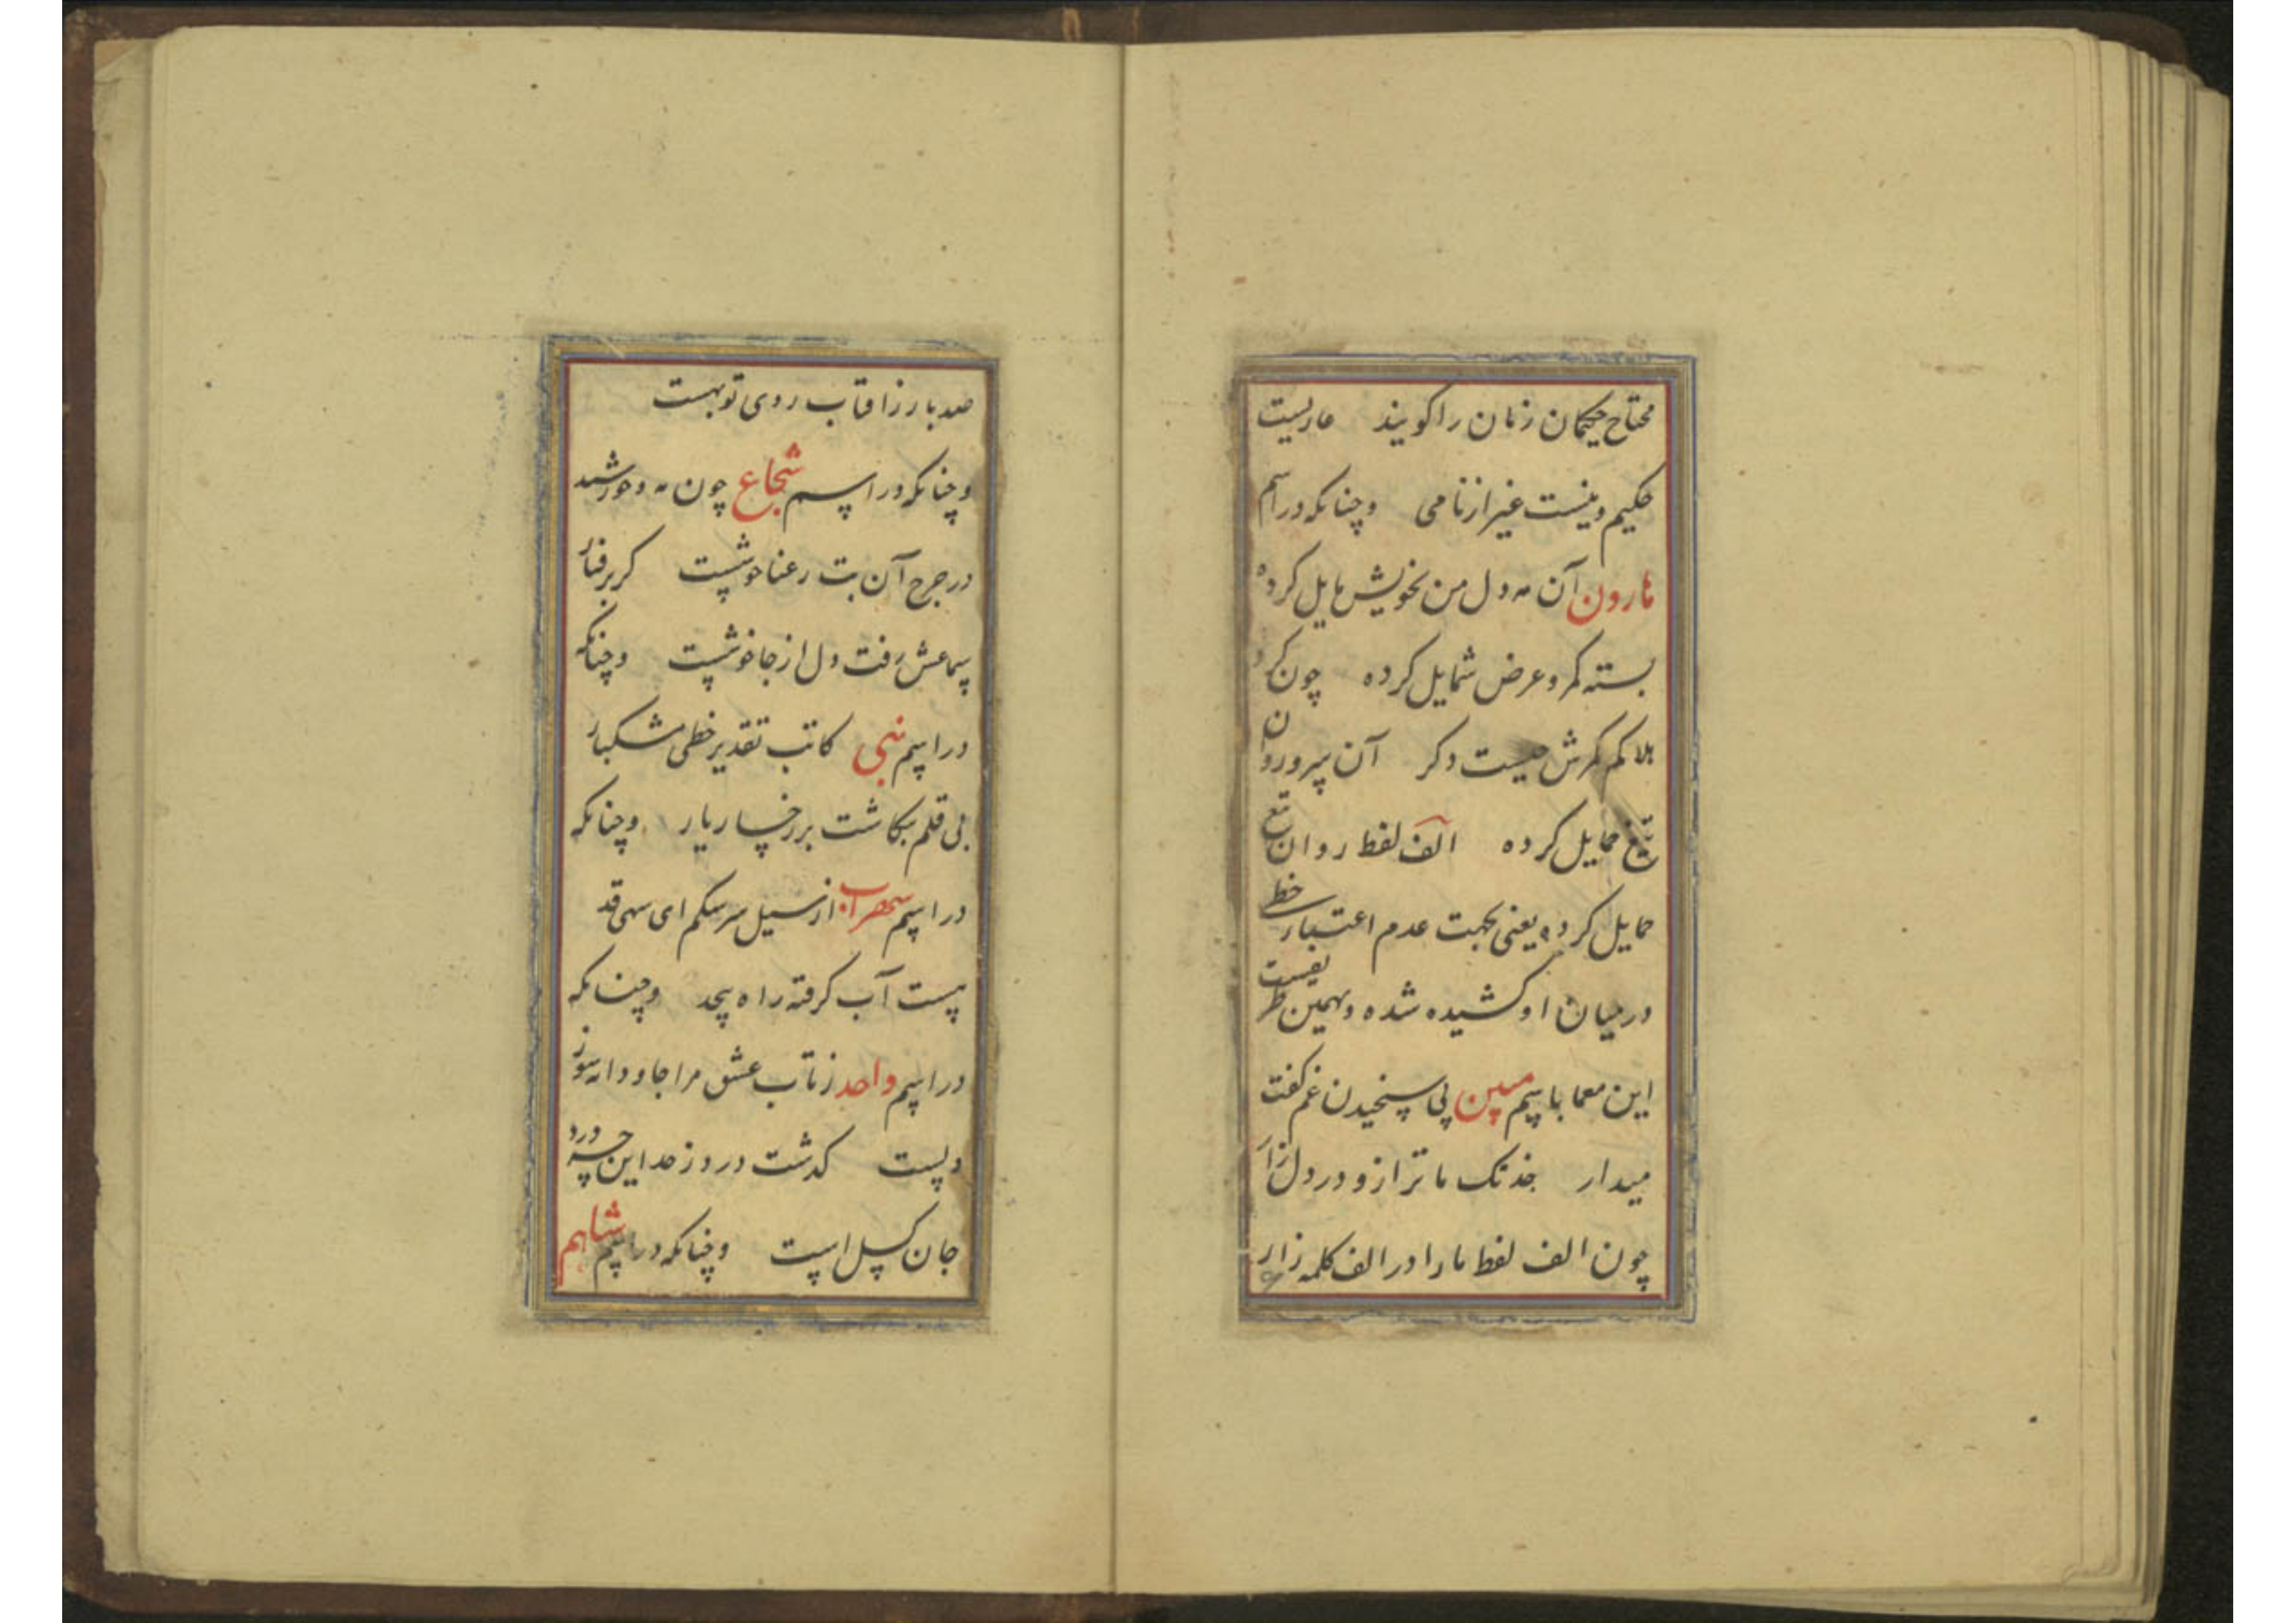 محتاح حکیمان زنان را کویند عاریست
حکیم و نیست غیر از نامی وچنانکه در اسم
هارون آن مه دل من بخویش مایل کرده
بسته کمر و عرض شمایل کرده چون کرد
هلاکم کمرش چیست دکر آن سرو روان
تیغ حمایل کرده الف لفظ روان تیغ
حمایل کرده یعنی بجهت عدم اعتبار خط
در میان او کشیده شده و بهمین طریقست
این معما باسم مبین پی سنجیدن غم کفت
میدار خدنک ما ترازو در دل زار
چون الف لفظ ما را در الف کلمه زار
صد بار ز افتاب روی تو بهست
وچنانکه در اسم شجاع چون مه و خورشید
در چرخ آن بت رعنا خوشست کر برفتار
سماعش رفت دل از جا خوشست وچنانکه
در اسم نبی کاتب تقدیر خطی مشکبار
بی قلم بنکاشت بر رخسار یار وچنانکه
در اسم سهراب از سیل سرشکم ای سهی قد
پیست آب کرفته راه بیحد وچنانکه
در اسم واحد ز تاب عشق مرا جاودانه سوز
دلست کذشت درد ز حد این چه درد
جان کسل است وچنانکه در اسم شاهم